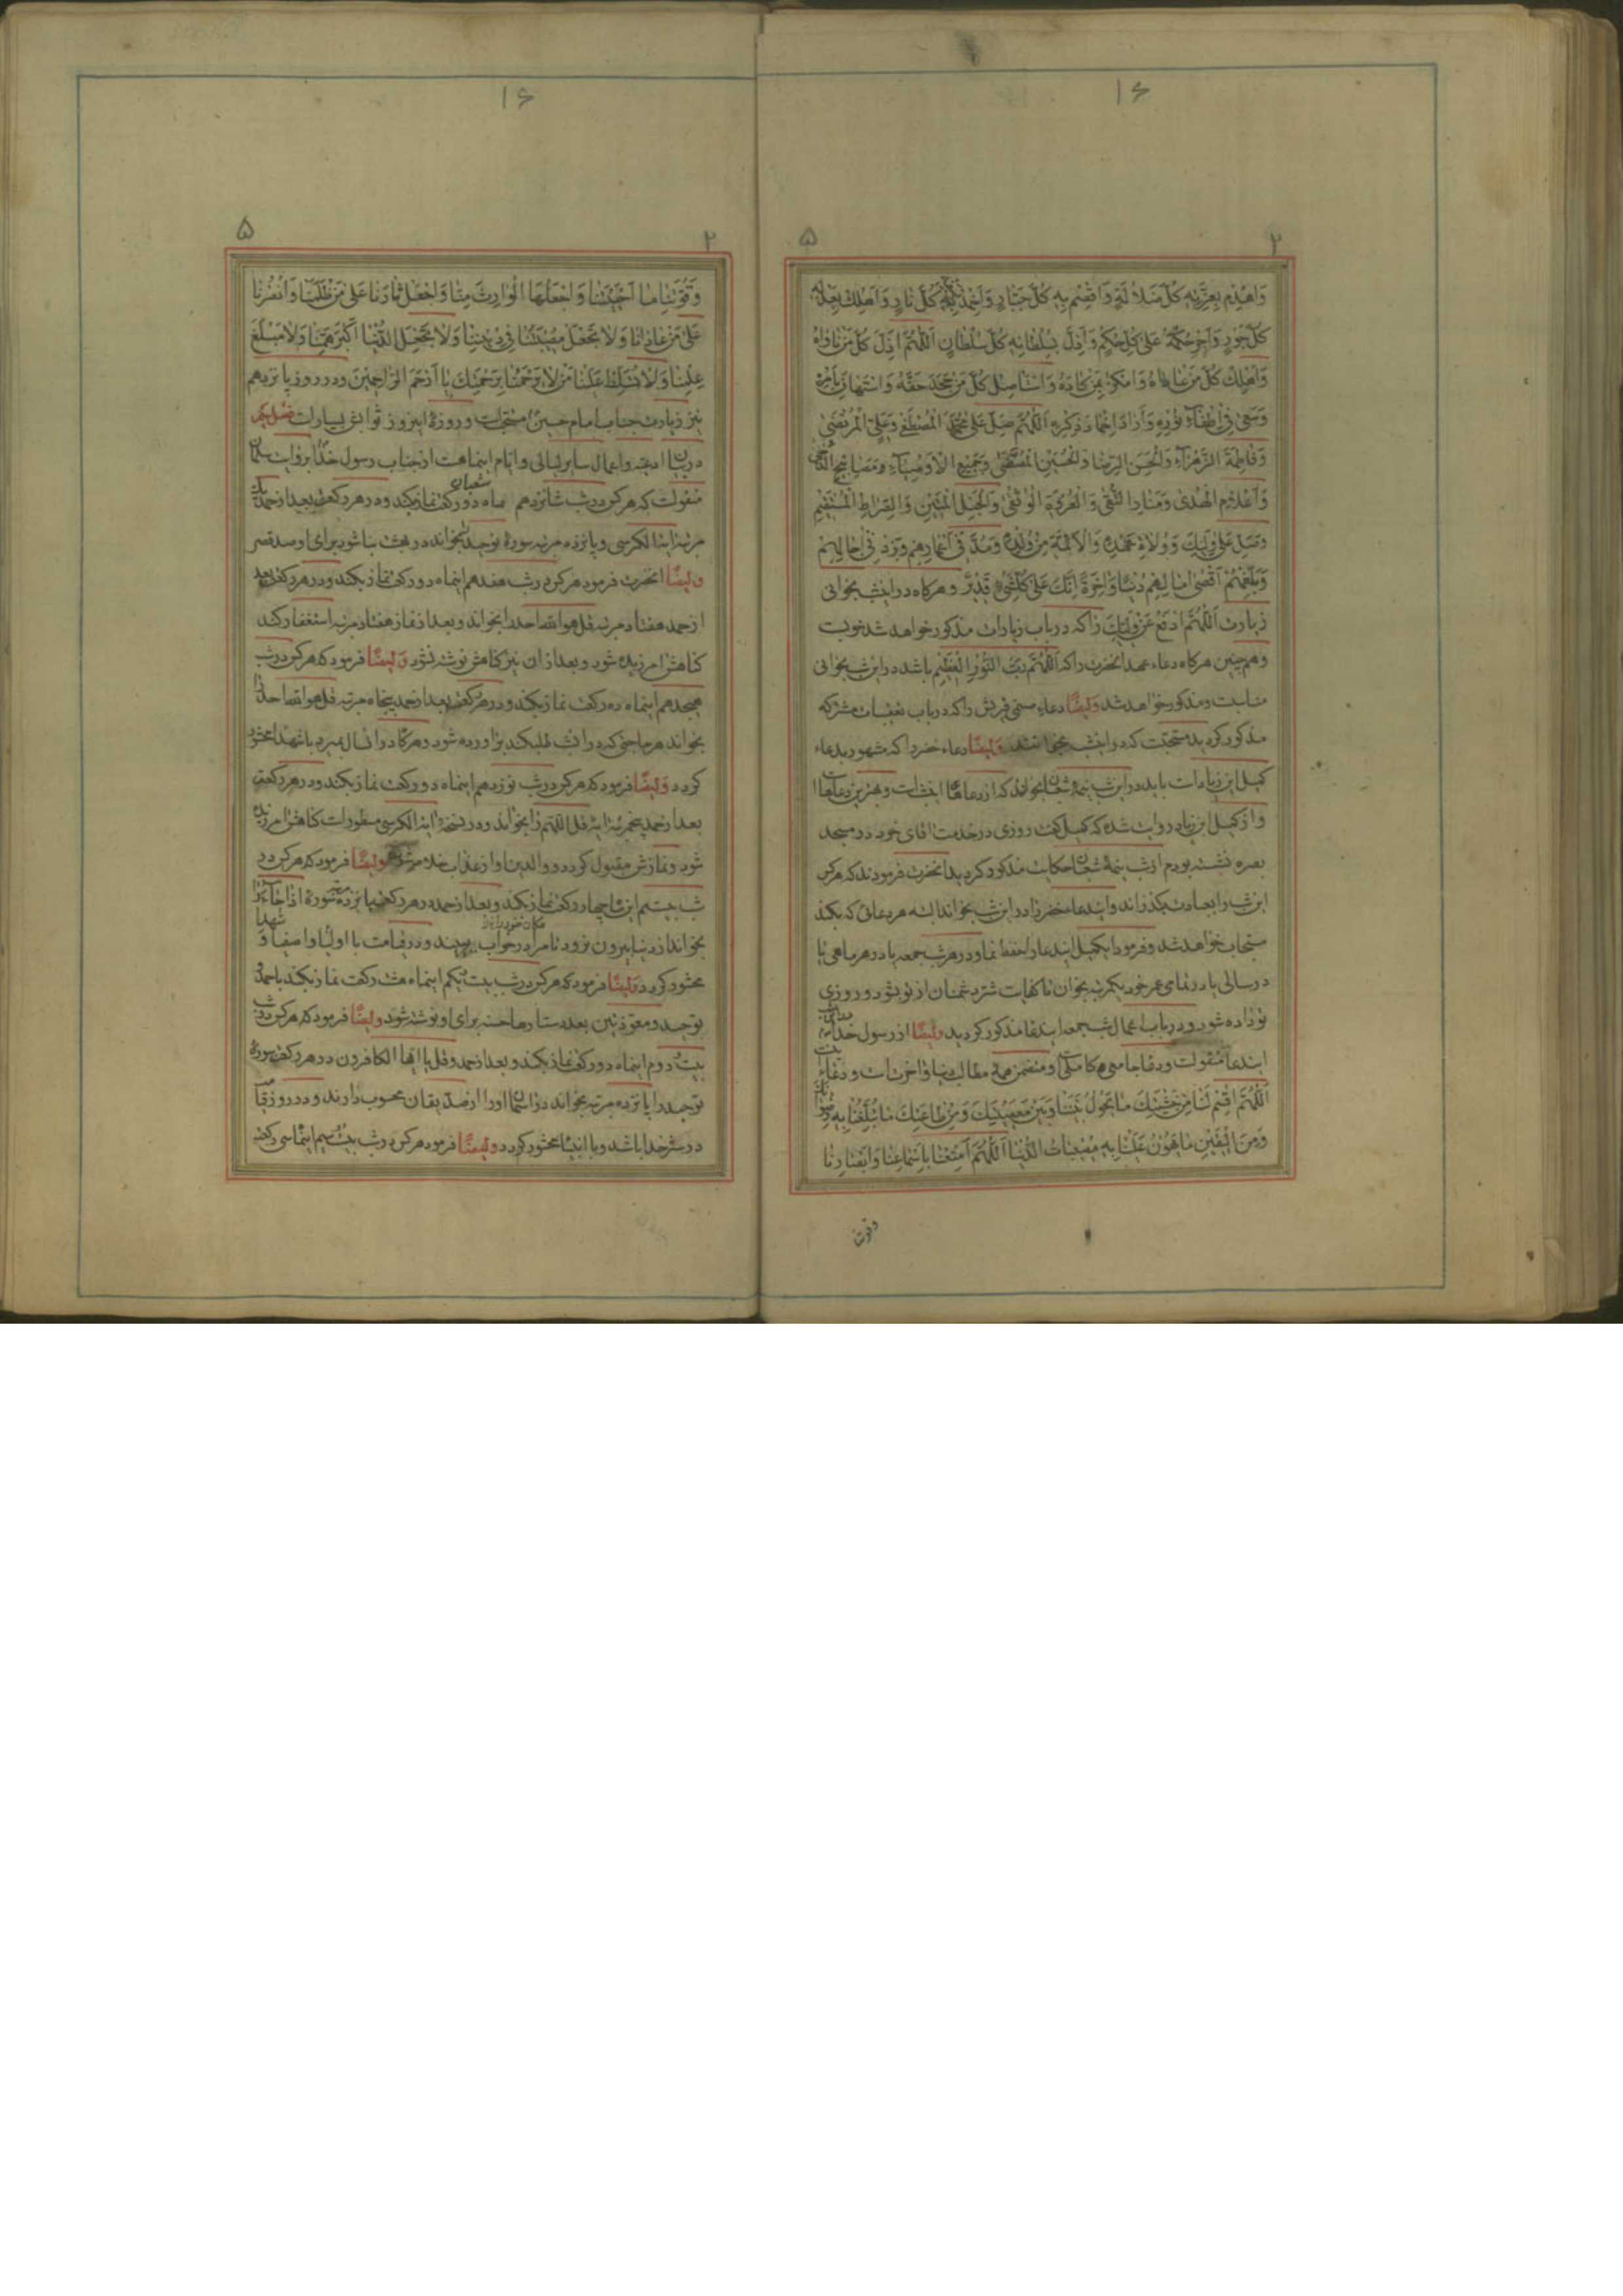 ۱۶
۲ ۵
وَاهْدِمْ بِعِزَّتِهِ كُلَّ ضَلالَةٍ وَاقْصِمْ بِهِ كُلَّ جَبّارٍ وَاَخْمِدْ كُلَّ نارٍ وَاَهْلِكْ بِعَدْلِهِ
كُلَّ جَوْرٍ وَاَجْرِ حُكْمَهُ عَلى كُلِّ حُكْمٍ وَاَذِلَّ بِسُلْطانِهِ كُلَّ سُلْطانٍ اَللّهُمَّ اَذِلَّ كُلَّ مَنْ ناواهُ
وَاَهْلِكْ كُلَّ مَنْ عاداهُ وَامْكُرْ بِمَنْ كادَهُ وَاسْتَأْصِلْ كُلَّ مَنْ جَحَدَ حَقَّهُ وَاسْتَهانَ بِاَمْرِهِ
وَسَعى فى اِطْفاءِ نُورِهِ وَاَرادَ اِخْمادَ ذِكْرِهِ اَللّهُمَّ صَلِّ عَلى مُحَمَّدٍ الْمُصْطَفى وَعَلِىٍّ الْمُرْتَضى
وَفاطِمَةَ الزَّهْراءِ وَالْحَسَنِ الرِّضا وَالْحُسَيْنِ الْمُصَفّى وَجَمِيعِ الْاَوْصِياءِ وَمَصابِيحِ الدُّجى
وَاَعْلامِ الْهُدى وَمَنارِ التُّقى وَالْعُرْوَةِ الْوُثْقى وَالْحَبْلِ الْمَتِينِ وَالصِّراطِ الْمُسْتَقِيمِ
وَصَلِّ عَلى وَلِيِّكَ وَوُلاةِ عَهْدِهِ وَالْاَئِمَّةِ مِنْ وُلْدِهِ وَمُدَّ فى اَعْمارِهِمْ وَزِدْ فى اجالِهِمْ
وَبَلِّغْهُمْ اَقْصى امالِهِمْ دُنْيا وَاخِرَةً اِنَّكَ عَلى كُلِّ شَىْءٍ قَدِيرٌ و هرکاه در اینشب بخوانی
زیارت اَللّهُمَّ ادْفَعْ عَنْ وَلِيِّكَ را که در باب زیارات مذکور خواهد شد خوبست
و همچنین هرکاه دعاء عهد انحضرت را که اَللّهُمَّ رَبَّ النُّورِ الْعَظِيمِ باشد در این شب بخوانی
مناسبت و مذکور خواهد شد وَایضًا دعاء را که در باب تعقیبات مشترکه
مذکور کردید مستحبّت که در اینشب بخوانند وَایضًا دعاء خضر را که مشهور بدعاء
کمیل ابن زیادات باید در این شب نیمهٔ شعبان بخواند که از دعاهای اینشبات و بهترین دعاها
و از کمیل ابن زیاد روایت شده که کمیل کفت روزی در خدمت اقای خود در مسجد
بصره نشسته بودم از شب نیمهٔ شعبان حکایت مذکور کردید انحضرت فرمودند که هرکس
این شب را بعبادت بکذراند و ایندعاء خضر را در این شب بخواند البته هر دعائی که بکند
مستجاب خواهد شد و فرمود ای کمیل ایندعا را حفظ نما و در هر شب جمعه یا در هر ماهی یا
در سالی یا در تمامی عمر خود یکمرتبه بخوان تا کفایت شرّ دشمنان از تو بشود و روزی
تو زاده شود و در باب اعمال شب جمعه ایندعا مذکور کردید وایضًا از رسول خدا
ایندعا منقولست و دعا جامعی و کاملی و متضمن همهٔ مطالب دنیا و اخرتست و دعاء
اَللّهُمَّ اقْسِمْ لَنا مِنْ خَشْيَتِكَ ما يَحُولُ بَيْنَنا وَبَيْنَ مَعْصِيَتِكَ وَمِنْ طاعَتِكَ ما تُبَلِّغُنا بِهِ
وَمِنَ الْيَقِينِ ما يَهُونُ عَلَيْنا بِهِ مُصِيباتُ الدُّنْيا اَللّهُمَّ اَمْتِعْنا بِاَسْماعِنا وَاَبْصارِنا
وقوتنا
۱۶
۲ ۵
وَقُوَّتِنا ما اَحْيَيْتَنا وَاجْعَلْهَا الْوارِثَ مِنّا وَاجْعَلْ ثارَنا عَلى مَنْ ظَلَمَنا وَانْصُرْنا
عَلى مَنْ عادانا وَلا تَجْعَلْ مُصِيبَتَنا فى دِينِنا وَلا تَجْعَلِ الدُّنْيا اَكْبَرَ هَمِّنا وَلا مَبْلَغَ
عِلْمِنا وَلا تُسَلِّطْ عَلَيْنا مَنْ لا يَرْحَمُنا بِرَحْمَتِكَ يا اَرْحَمَ الرّاحِمِينَ و در روز پانزدهم
نیز زیارت جناب امام حسین مستحبّت و روزهٔ اینروز ثوابش بسیارات
در بیان ادعیه و اعمال سایر لیالی و ایّام اینماهت از جناب رسول خدا بروایت سلمان
منقولت که هرکس در شب شانزدهم ماه شعبان دو رکعت نماز بکند و در هر رکعت بعد از حمد یک
مرتبه ایة الکرسی و پانزده مرتبه سورهٔ توحید بخواند در بهشت بنا شود برای او صد قصر
وایضًا انحضرت فرمود هرکس در شب هفدهم اینماه دو رکعت نماز بکند و در هر رکعت بعد
از حمد هفتاد مرتبه قل هو الله احد را بخواند و بعد از نماز هفتاد مرتبه استغفار کند
کناهش امرزیده شود و بعد از ان نیز کناهش نوشته نشود وَایضًا فرمود که هرکس در شب
هیجدهم اینماه ده رکعت نماز بکند و در هر رکعت بعد از حمد پنجاه مرتبه قل هو الله احد را
بخواند هر حاجتی که در انشب طلبکند براورده شود و هرکاه در انسال بمیرد با شهدا محشور
کردد وَایضًا فرمود که هرکس در شب نوزدهم اینماه دو رکعت نماز بکند و در هر رکعت
بعد از حمد پنجمرتبه ایة قل اللّهمّ را بخواند و در نسخهٔ ایة الکرسی مسطورات کناهش امرزیده
شود و نمازش مقبول کردد و والدین او از عذاب خلاص شوند وایضًا فرمود که هرکس در
شب بیستم این ماه چهار رکعت نماز بکند و بعد از حمد در هر رکعت پانزده مرتبه سورهٔ اذا جاء را
بخواند از دنیا بیرون نرود تا مرا در خواب به بیند و در قیامت با اولیا و اصفیا و شهدا
محشور کردد وایضًا فرمود که هرکس در شب بیست یکم اینماه هشت رکعت نماز بکند با حمد و
توحید و معوّذتین بعدد ستارها حسنه برای او نوشته شود وایضًا فرمود که هرکس در شب
بیست دوم اینماه دو رکعت نماز بکند و بعد از حمد و قل یا ایها الکافرون در هر رکعت سورهٔ
توحید را پانزده مرتبه بخواند در اسمان او را از صدّیقان محسوب دارند و در روز قیامت
در ستر خدا باشد و با انبیا محشور کردد وایضًا فرمود هرکس در شب بیست سیم اینماه سی رکعت